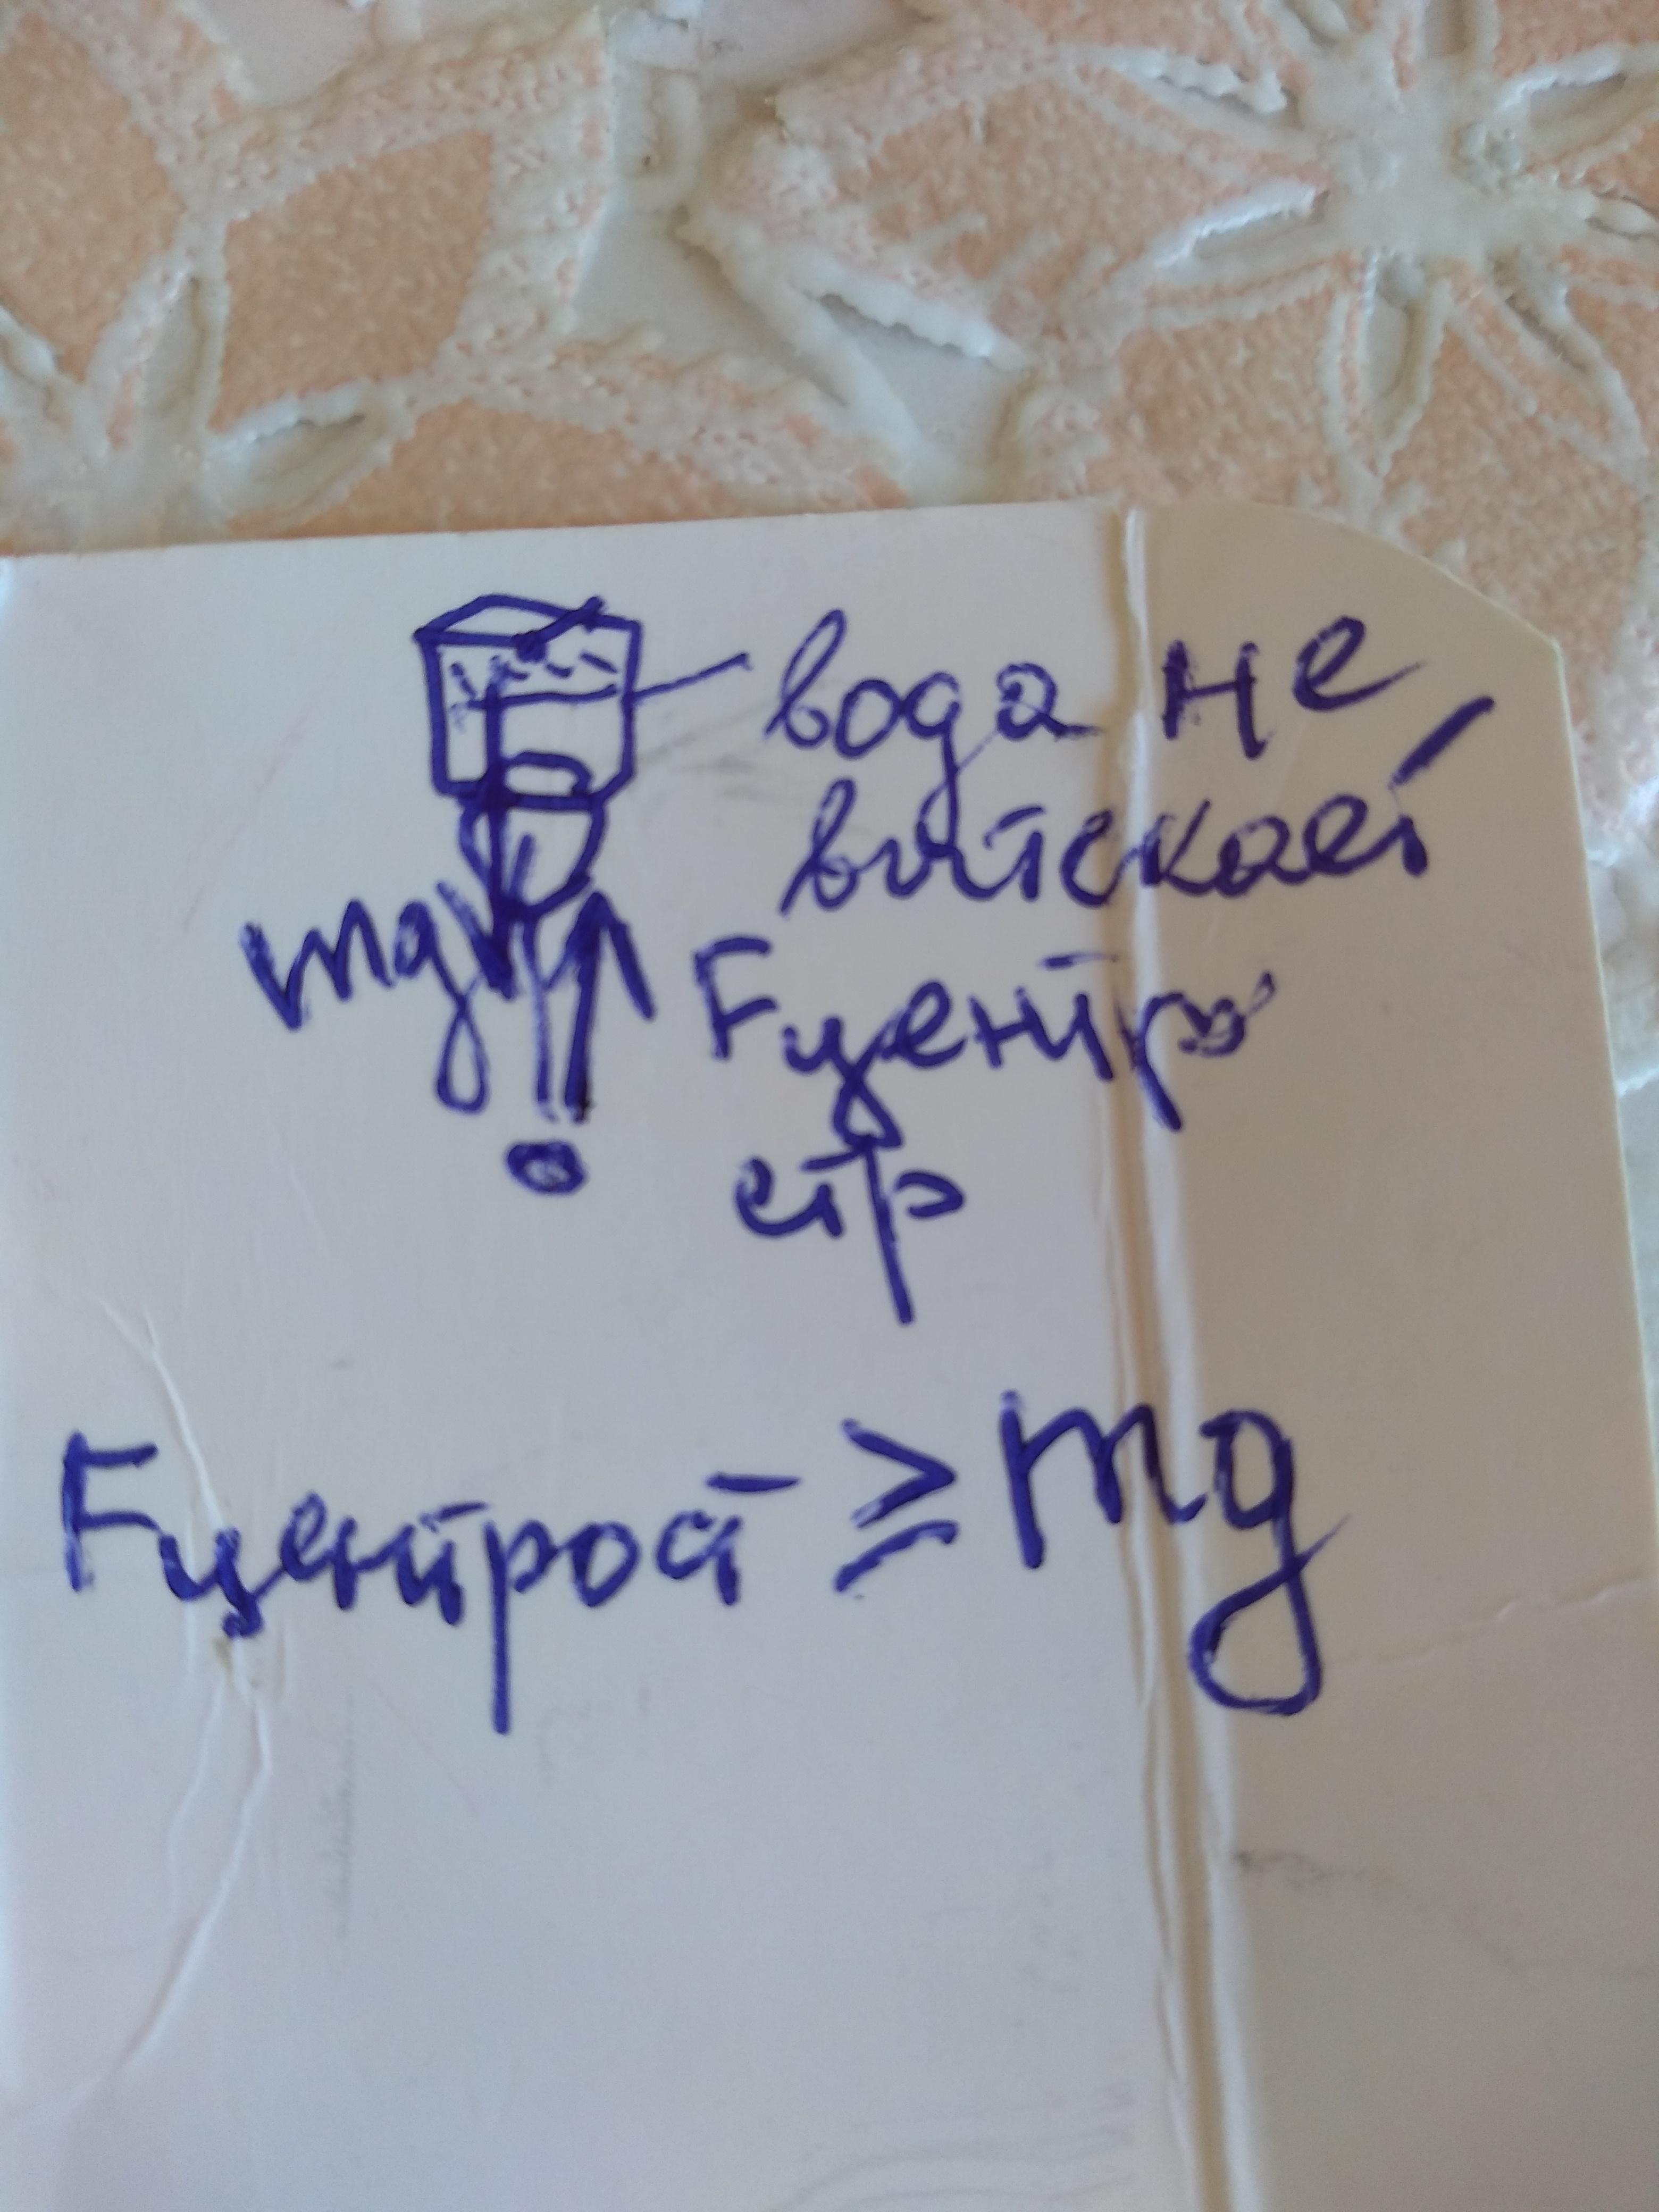 вода не
вытекает
mg
Fцентро
стр
Fцентрост ≥ mg